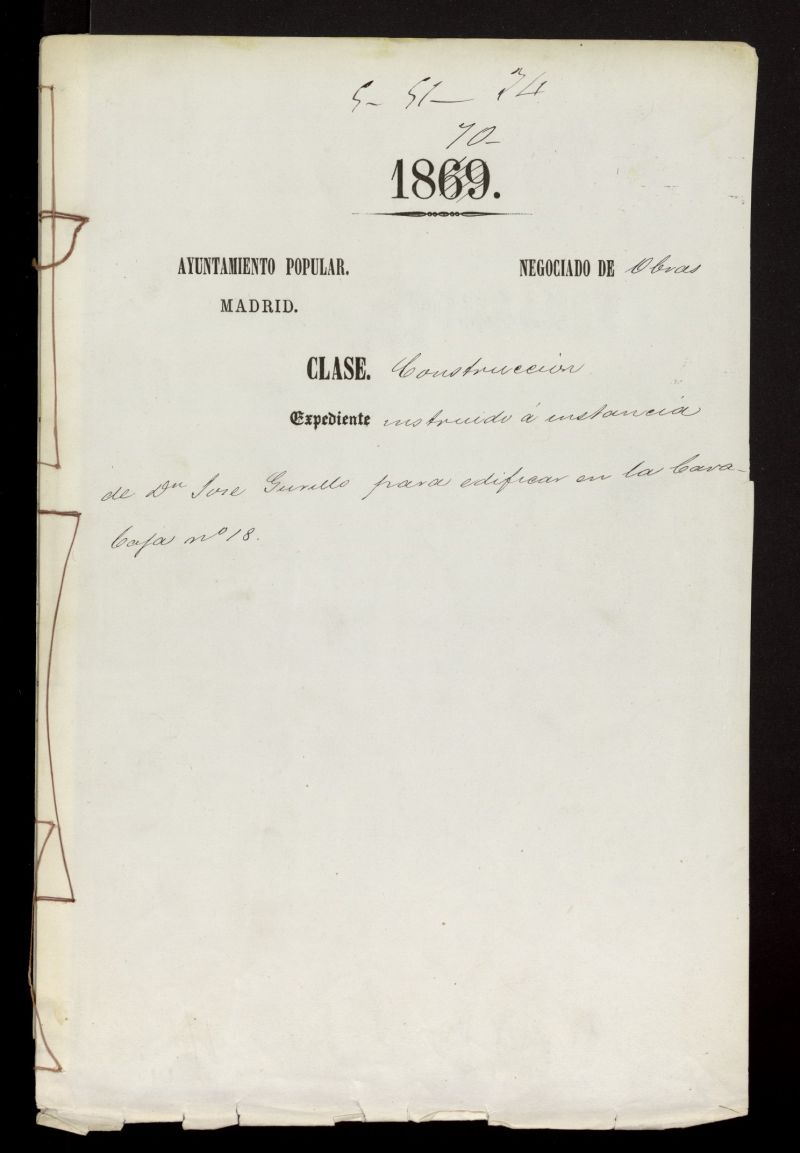 5- 51- 34
70-
1869.
AYUNTAMIENTO POPULAR.
MADRID.
NEGOCIADO DE Obras
CLASE. Construccion
Expediente instruido á instancia
de Dn Jose para edificar en la Cava-
baja nº 18.